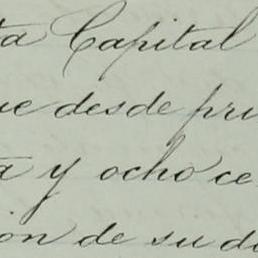 ta Capital
ue desde pri
a y ocho ce
ion de su do